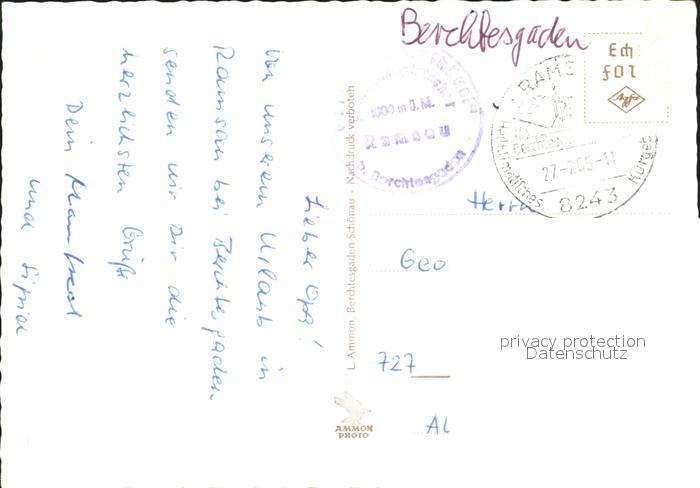 Berchtesgaden
Lieber Opa!
Von unserem Urlaub in
Ramsau bei Berchtesgaden
senden wir Dir die
herzlichsten Grüße
Dein Manfred
und
L. Ammon, Berchtesgaden Schönau - Nachdruck verboten
AMMON
PHOTO
1000 m ü.M.
Ramsau
b. Berchtesgaden
RAMS
Berchtes
27-7.65-11
heilklimatisches
Kurgeb
8243
Agfa
Herrn
Geo
727
Al
privacy protection
Datenschutz